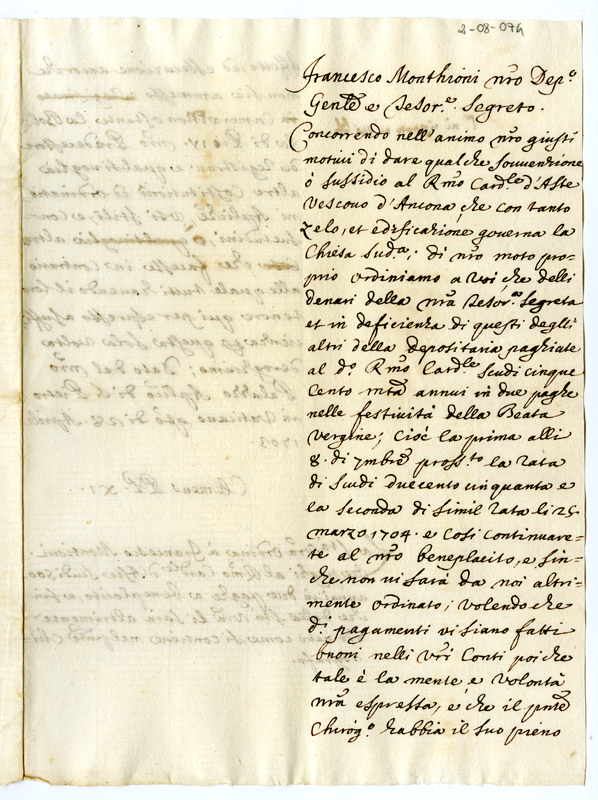 2-08-074
Francesco Monthioni nr̃o Dep.º
Gen̅le e Tesor.ᵉ Segreto.
Concorrendo nell' animo nr̃o giusti
motivi di dare qualche souvenzione
ò sussidio al R̃mo Card.ˡᵉ d'Aste
Vescouo d'Ancona che con tanto
zelo, et edificazione governa la
Chiesa sud.ᵃ; di nr̃o moto pro=
prio ordiniamo a voi che delli
denari della nr̃a Tesor.ᵃ segreta
et in deficienza di questi degli
altri della depositaria paghiate
al d.º R̃mo Card.ˡᵉ scudi cinque
Cento mt̃a annui in due paghe
nelle festiuità della Beata
Vergine; Cioè la prima alli
8. di 7mbrẽ pross.ᵗᵒ la rata
di Scudi duecento cinquanta e
la seconda di simil rata li 25
marzo 1704. e così continuare=
te al nr̃o beneplacito, e sin=
che non vi sarà da noi altri=
mente ordinato; volendo che
d.ⁱ pagamenti vi siano fatti
buoni nelli vr̃i Conti poiche
tale è la mente e volontà
nr̃a espressa, è che il pn̅te
Chirog.º habbia il suo pieno